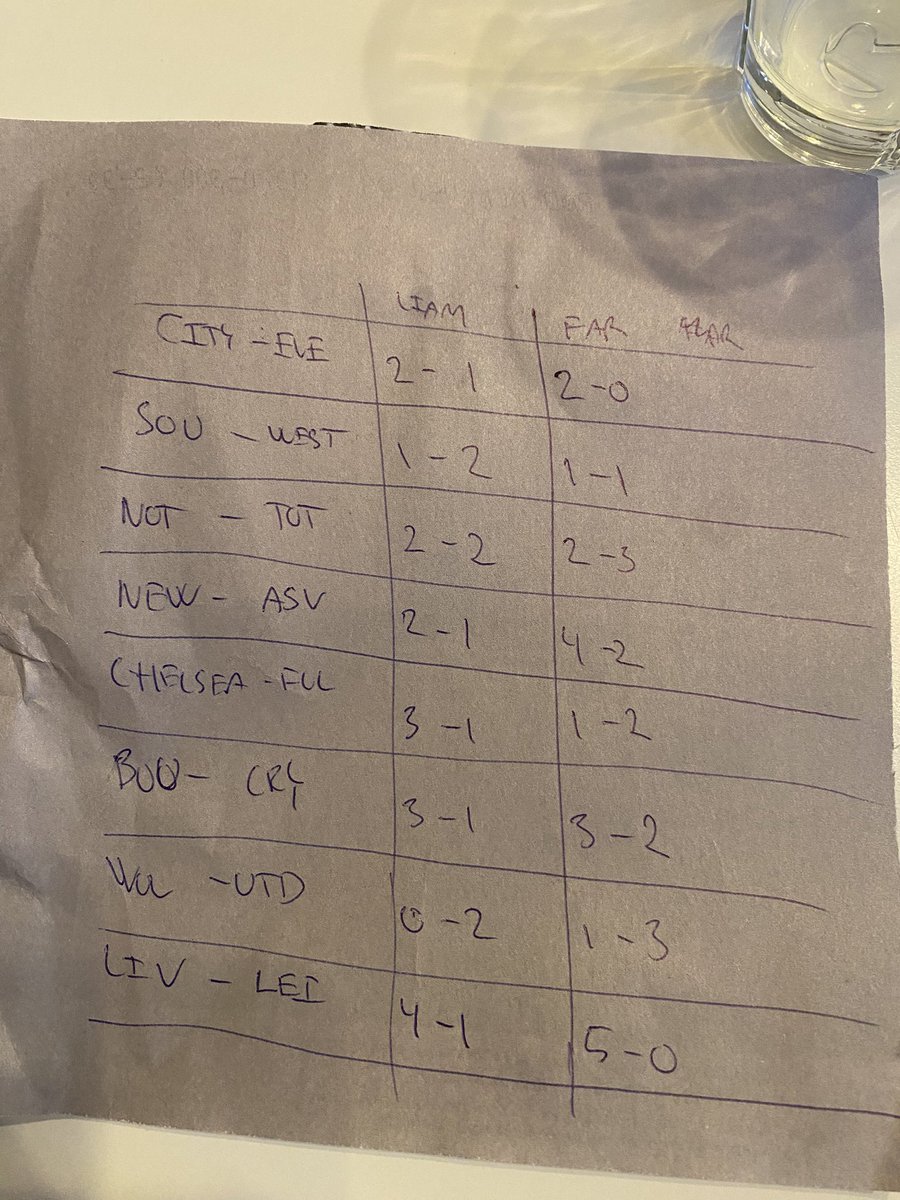 LIAM FAR
CITY - EVE 2 - 1 2 - 0
SOU - WEST 1 - 2 1 - 1
NOT - TOT 2 - 2 2 - 3
NEW - ASV 2 - 1 4 - 2
CHELSEA - FUL 3 - 1 1 - 2
BOU - CRY 3 - 1 3 - 2
WOL - UTD 0 - 2 1 - 3
LIV - LEI 4 - 1 5 - 0